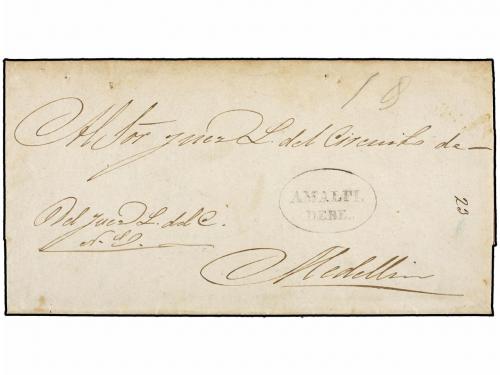 18
Al Sor Juez L. del Circuito de
AMALFI.
DEBE.
25
Del Juez L. del C.
N. E.
Medellin